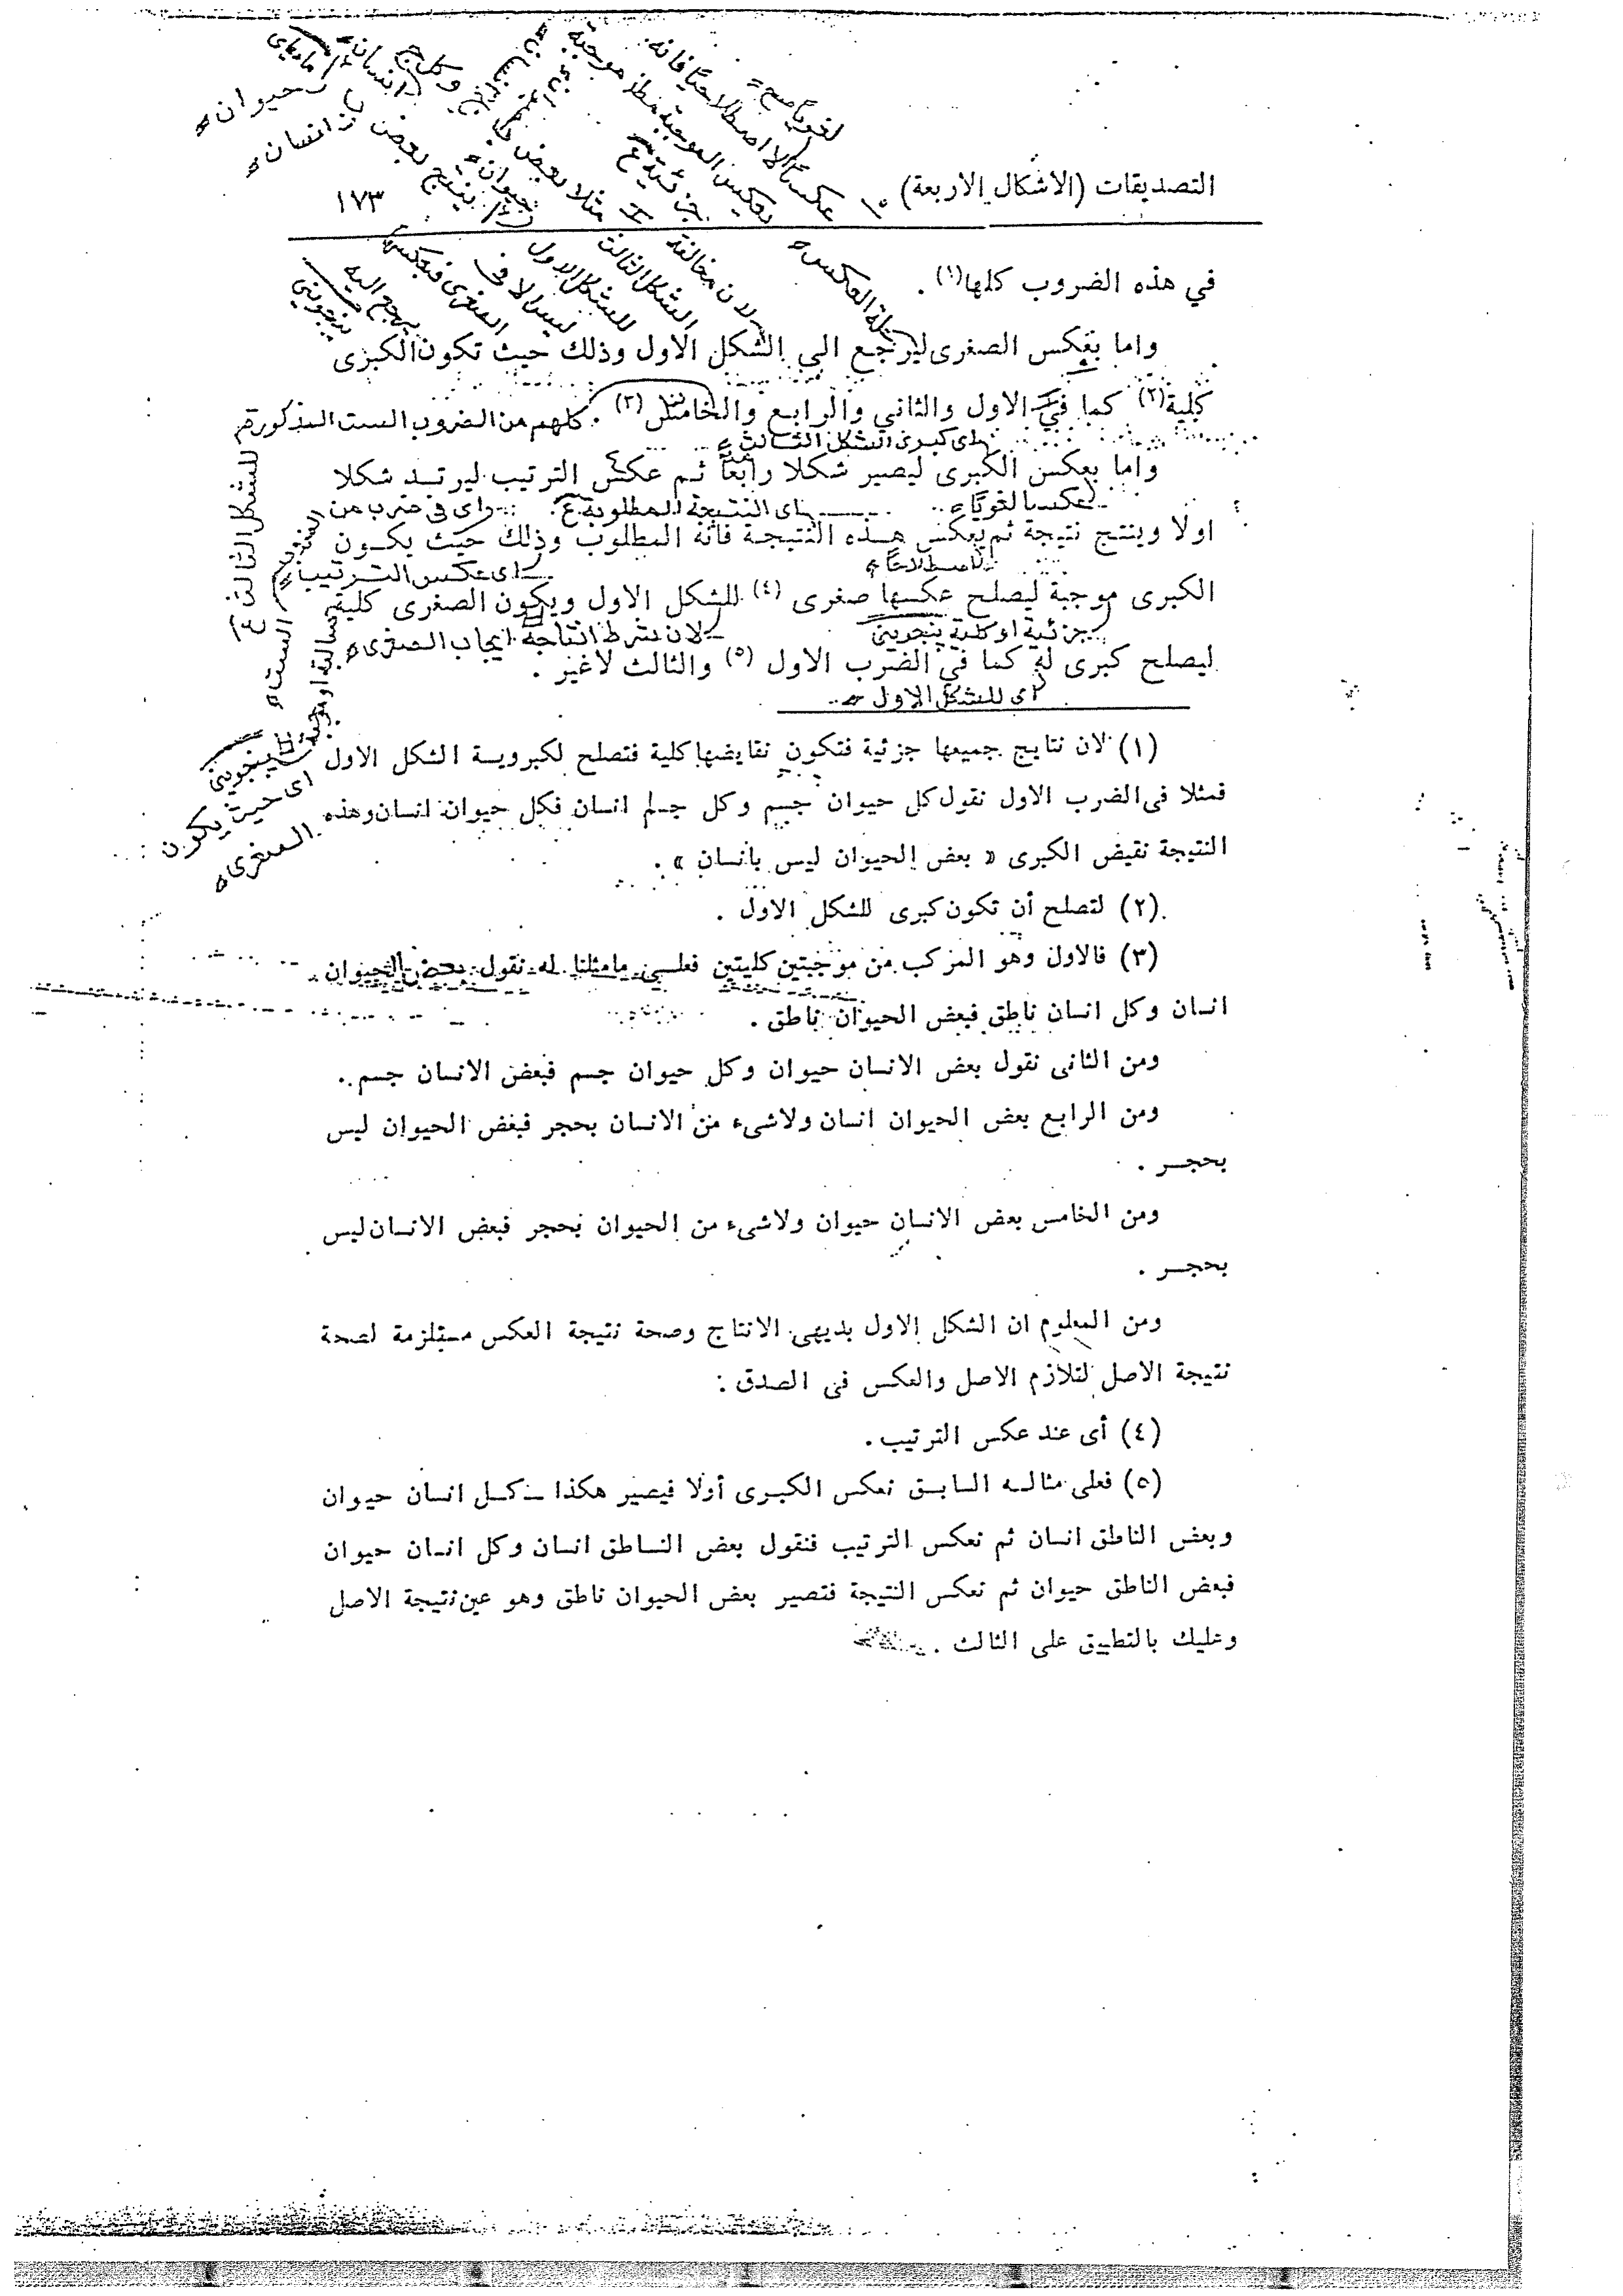 التصديقات (الاشكال الاربعة)
١٧٣
في هذه الضروب كلها(١) .
واما بعكس الصغرى ليرجع الى الشكل الاول وذلك حيث تكون الكبرى
كلية(٢) كما في الاول والثاني والرابع والخامس (٣) .
كلهم من الضروب الست المذكورة
للشكل الثالث
اى كبرى الشكل الثالث
واما بعكس الكبرى ليصير شكلا رابعا ثم عكس الترتيب ليرتد شكلا
عكسا لغويا
اى النتيجة المطلوبة
اى فى ضرب من
اولا وينتج نتيجة ثم يعكس هذه النتيجة فانه المطلوب وذلك حيث يكون
اصطلاحا
اى عكس الترتيب
الكبرى موجبة ليصلح عكسها صغرى (٤) للشكل الاول ويكون الصغرى كلية
جزئية او كلية ينجوينى
لان شرط انتاجه ايجاب الصغرى
ليصلح كبرى له كما في الضرب الاول (٥) والثالث لاغير .
اى للشكل الاول
ينجوينى
اى حيث يكون
الصغرى
(١) لان نتايج جميعها جزئية فتكون نقايضها كلية فتصلح لكبروية الشكل الاول
فمثلا فى الضرب الاول نقول كل حيوان جسم وكل جسم انسان فكل حيوان انسان وهذه
النتيجة نقيض الكبرى « بعض الحيوان ليس بانسان » .
(٢) لتصلح أن تكون كبرى للشكل الاول .
(٣) فالاول وهو المركب من موجبتين كليتين فعلى مامثلنا له نقول بعض الحيوان
انسان وكل انسان ناطق فبعض الحيوان ناطق .
ومن الثانى نقول بعض الانسان حيوان وكل حيوان جسم فبعض الانسان جسم .
ومن الرابع بعض الحيوان انسان ولاشىء من الانسان بحجر فبعض الحيوان ليس
بحجـر .
ومن الخامس بعض الانسان حيوان ولاشىء من الحيوان بحجر فبعض الانسان ليس
بحجـر .
ومن المعلوم ان الشكل الاول بديهى الانتاج وصحة نتيجة العكس مستلزمة لصحة
نتيجة الاصل لتلازم الاصل والعكس فى الصدق :
(٤) أى عند عكس الترتيب .
(٥) فعلى مثالـه السابـق نعكس الكبـرى أولا فيصير هكذا ـ كـل انسان حيوان
وبعض الناطق انسان ثم نعكس الترتيب فنقول بعض الناطق انسان وكل انسان حيوان
فبعض الناطق حيوان ثم نعكس النتيجة فتصير بعض الحيوان ناطق وهو عين نتيجة الاصل
وعليك بالتطبيق على الثالث .